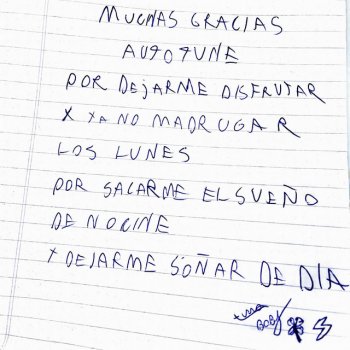 MUCHAS GRACIAS
AUTOTUNE
POR DEJARME DISFRUTAR
X YA NO MADRUGAR
LOS LUNES
POR SACARME EL SUEÑO
DE NOCHE
Y DEJARME SOÑAR DE DIA